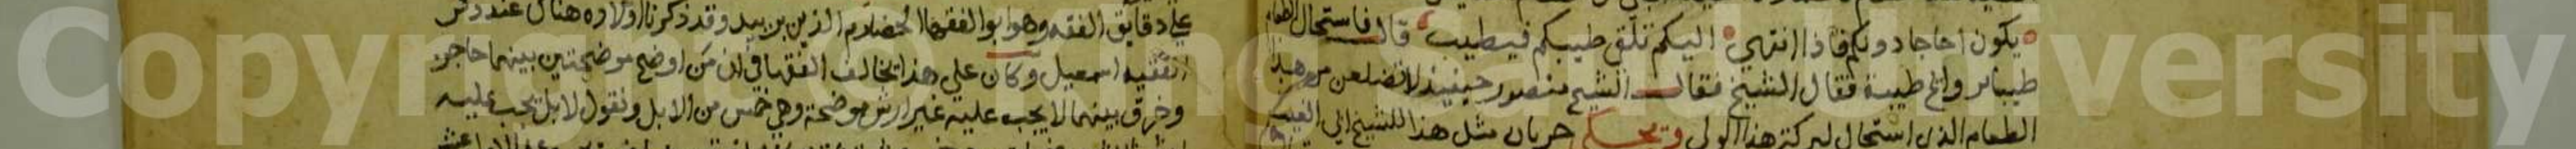 يكون اجاجا دونكم فاذا انتهى اليكم تلقى طيبكم فيطيب قال فاستحال الطعام
طيبا وراح طيبة فقال الشيخ فقال الشيخ منصور حينئذ لا فضل عن من هذا
الطعام الذي استحال لبركة هذا الولي ويحكى جريان مثل هذا للشيخ ابي الغيث
على دقايق الفقه وهو ابو الفقها الحضارم الذين بزبيد وقد ذكرنا اولاده هناك عند ذكر
الفقيه اسمعيل وكان على هذا يخالف الفقها في ان من اوضح موضحتين بينهما حاجز
وخرق بينهما لا يجب عليه غير ارش موضحة وهي خمس من الابل ونقول لا بل يجب عليه